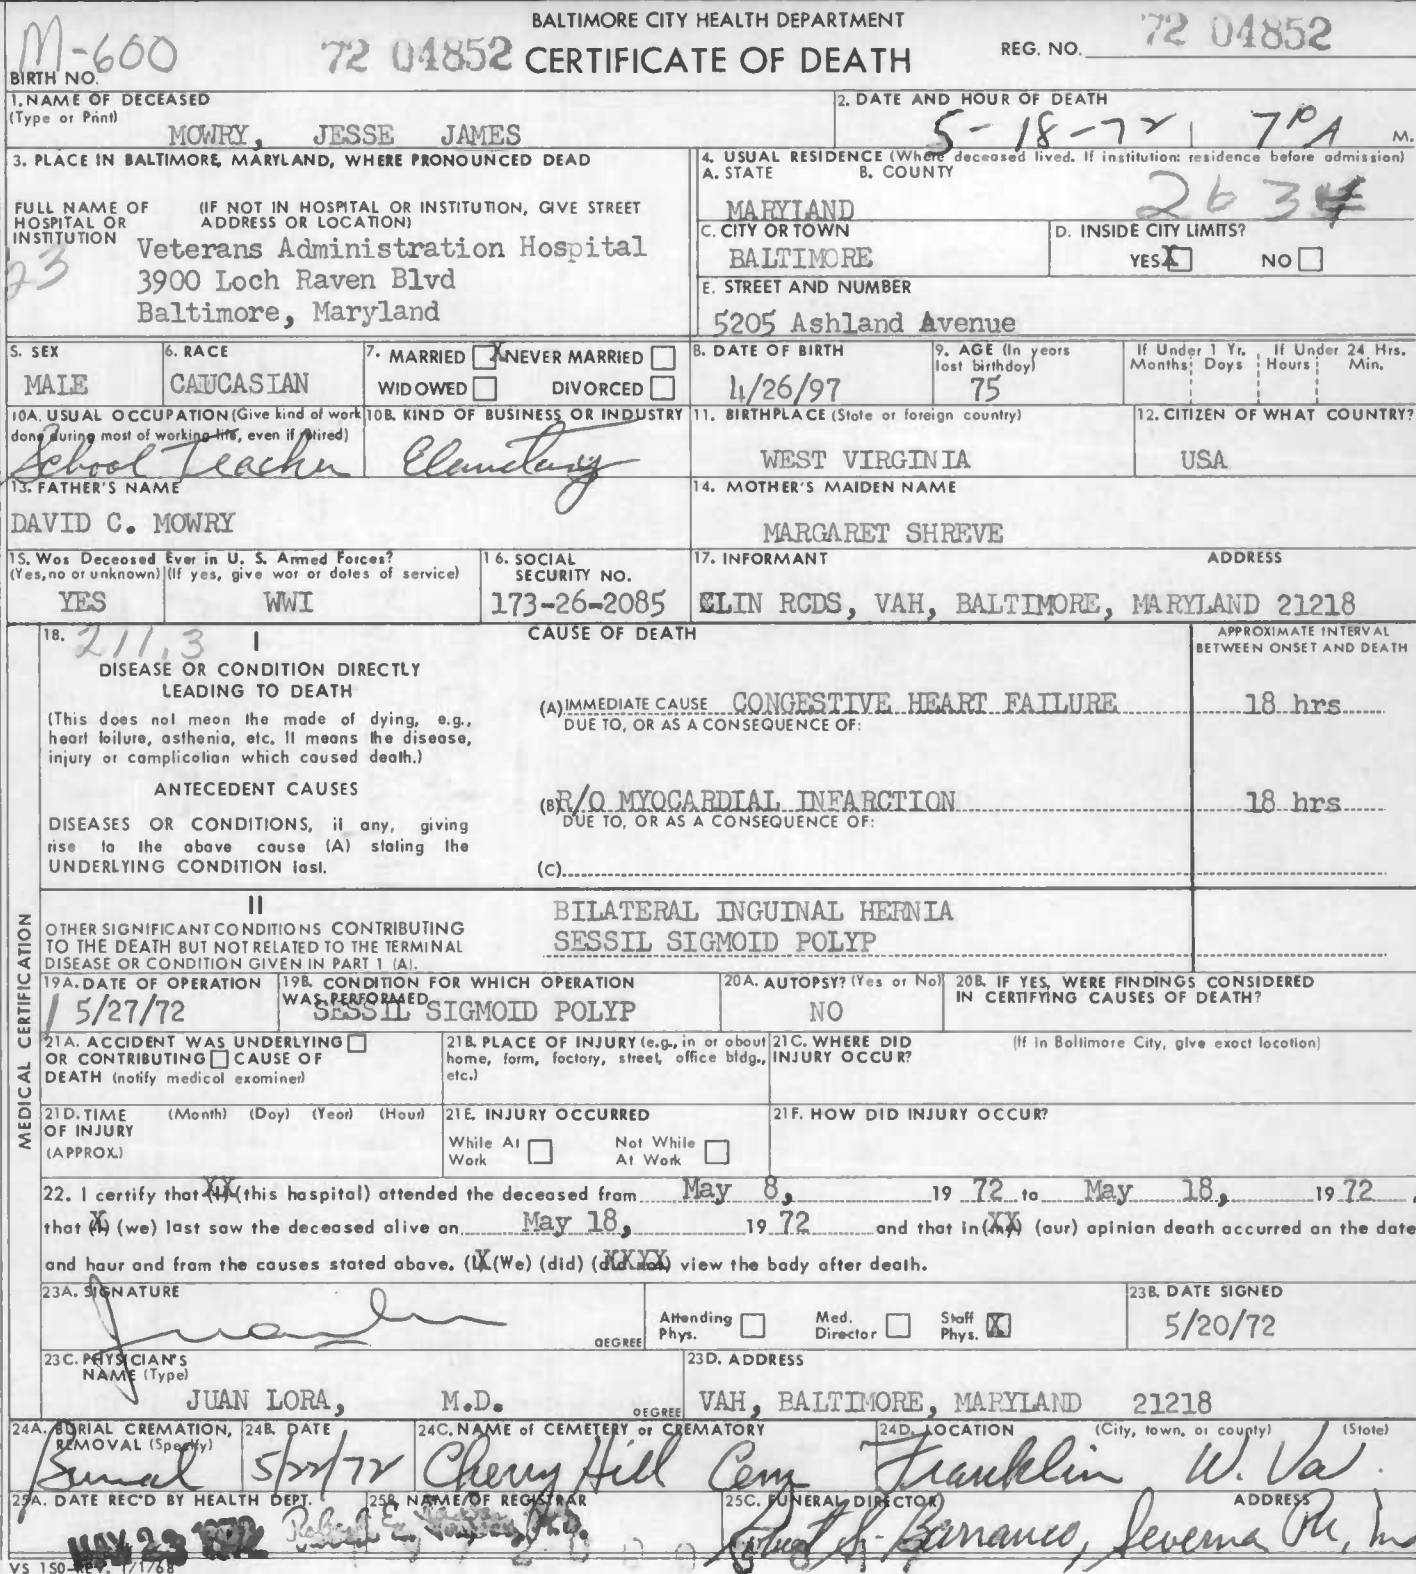 BALTIMORE CITY HEALTH DEPARTMENT
M-600 72 04852 CERTIFICATE OF DEATH REG. NO. 72 04852
BIRTH NO.
1. NAME OF DECEASED
(Type or Print)
MOWRY, JESSE JAMES
2. DATE AND HOUR OF DEATH
5-18-72 7 10 A M.
3. PLACE IN BALTIMORE, MARYLAND, WHERE PRONOUNCED DEAD
FULL NAME OF HOSPITAL OR INSTITUTION
(IF NOT IN HOSPITAL OR INSTITUTION, GIVE STREET
ADDRESS OR LOCATION)
23
Veterans Administration Hospital
3900 Loch Raven Blvd
Baltimore, Maryland
4. USUAL RESIDENCE (Where deceased lived. If institution: residence before admission)
A. STATE B. COUNTY
MARYLAND 263
C. CITY OR TOWN
BALTIMORE
D. INSIDE CITY LIMITS?
YES X NO
E. STREET AND NUMBER
5205 Ashland Avenue
5. SEX
MALE
6. RACE
CAUCASIAN
7. MARRIED X NEVER MARRIED
WIDOWED DIVORCED
8. DATE OF BIRTH
4/26/97
9. AGE (In years
last birthday)
75
If Under 1 Yr.
Months Days
If Under 24 Hrs.
Hours Min.
10A. USUAL OCCUPATION (Give kind of work
done during most of working life, even if retired)
School Teacher
10B. KIND OF BUSINESS OR INDUSTRY
Elementary
11. BIRTHPLACE (State or foreign country)
WEST VIRGINIA
12. CITIZEN OF WHAT COUNTRY?
USA
13. FATHER'S NAME
DAVID C. MOWRY
14. MOTHER'S MAIDEN NAME
MARGARET SHREVE
15. Was Deceased Ever in U. S. Armed Forces?
(Yes, no or unknown) (If yes, give war or dates of service)
YES WWI
16. SOCIAL
SECURITY NO.
173-26-2085
17. INFORMANT ADDRESS
CLIN RCDS, VAH, BALTIMORE, MARYLAND 21218
MEDICAL CERTIFICATION
18. 211.3
I
DISEASE OR CONDITION DIRECTLY
LEADING TO DEATH
(This does not mean the mode of dying, e.g.,
heart failure, asthenia, etc. It means the disease,
injury or complication which caused death.)
ANTECEDENT CAUSES
DISEASES OR CONDITIONS, if any, giving
rise to the above cause (A) stating the
UNDERLYING CONDITION last.
CAUSE OF DEATH
APPROXIMATE INTERVAL
BETWEEN ONSET AND DEATH
(A) IMMEDIATE CAUSE CONGESTIVE HEART FAILURE 18 hrs
DUE TO, OR AS A CONSEQUENCE OF:
(B) R/O MYOCARDIAL INFARCTION 18 hrs
DUE TO, OR AS A CONSEQUENCE OF:
(C)
II
OTHER SIGNIFICANT CONDITIONS CONTRIBUTING
TO THE DEATH BUT NOT RELATED TO THE TERMINAL
DISEASE OR CONDITION GIVEN IN PART 1 (A).
BILATERAL INGUINAL HERNIA
SESSIL SIGMOID POLYP
19A. DATE OF OPERATION
5/27/72
19B. CONDITION FOR WHICH OPERATION
WAS PERFORMED
SESSIL SIGMOID POLYP
20A. AUTOPSY? (Yes or No)
NO
20B. IF YES, WERE FINDINGS CONSIDERED
IN CERTIFYING CAUSES OF DEATH?
21A. ACCIDENT WAS UNDERLYING
OR CONTRIBUTING CAUSE OF
DEATH (notify medical examiner)
21B. PLACE OF INJURY (e.g., in or about
home, farm, factory, street, office bldg.,
etc.)
21C. WHERE DID
INJURY OCCUR?
(If in Baltimore City, give exact location)
21D. TIME (Month) (Day) (Year) (Hour)
OF INJURY
(APPROX.)
21E. INJURY OCCURRED
While At Work
Not While At Work
21F. HOW DID INJURY OCCUR?
22. I certify that (I) (this hospital) attended the deceased from May 8, 19 72 to May 18, 19 72,
that (I) (we) last saw the deceased alive on May 18, 19 72 and that in (my) (our) opinion death occurred on the date
and hour and from the causes stated above. (I) (We) (did) (did not) view the body after death.
23A. SIGNATURE
DEGREE
Attending Phys.
Med. Director
Staff Phys. X
23B. DATE SIGNED
5/20/72
23C. PHYSICIAN'S
NAME (Type)
JUAN LORA, M.D. DEGREE
23D. ADDRESS
VAH, BALTIMORE, MARYLAND 21218
24A. BURIAL CREMATION,
REMOVAL (Specify)
Burial
24B. DATE
5/22/72
24C. NAME of CEMETERY or CREMATORY
Cherry Hill Cem
24D. LOCATION (City, town, or county) (State)
Franklin W. Va.
25A. DATE REC'D BY HEALTH DEPT.
MAY 23 1972
25B. NAME OF REGISTRAR
Robert E.
25C. FUNERAL DIRECTOR ADDRESS
S. Barranco, Severna Pk, Md
VS 150-REV. 1/1/68